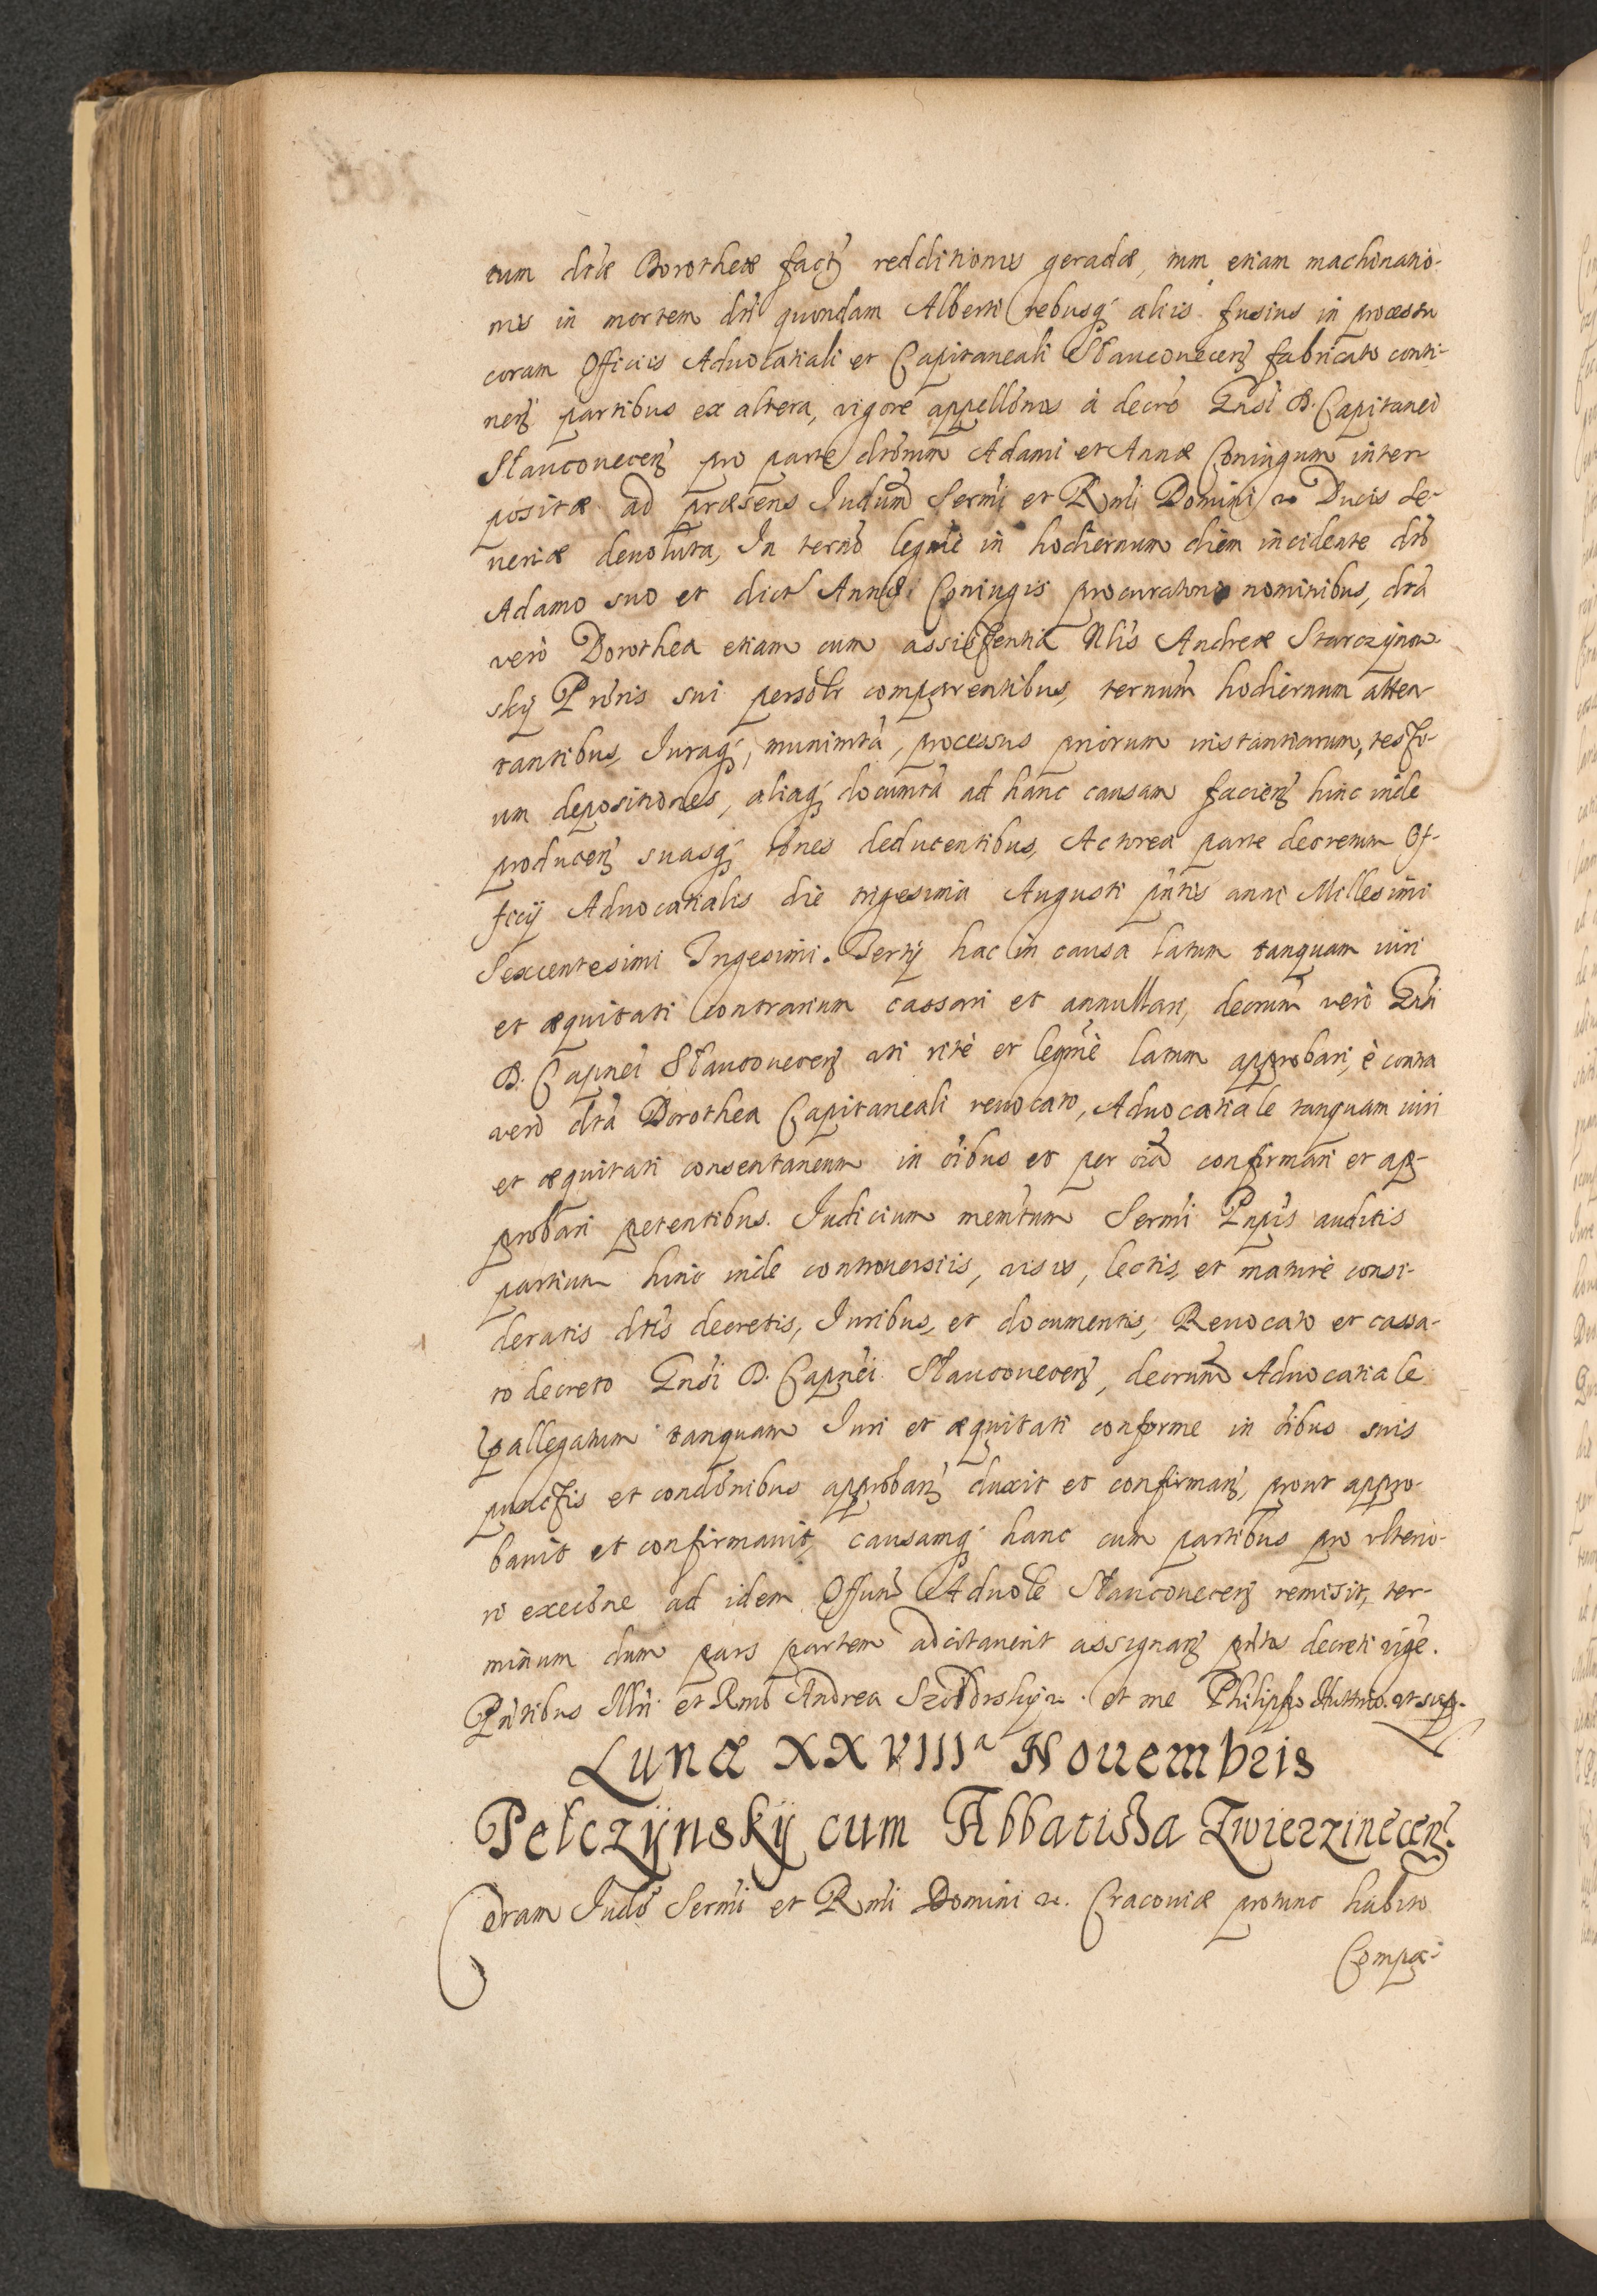 tum dtæ Dorotheæ factz redditionis geradæ, tum etiam machinatio-
nis in mortem dti quondam Alberti rebusq aliis fusius in processu
coram Officiis Aduocatiali et Capitaneali Slaucouiecenz fabricato conti-
nenz partibus ex altera, vigore appellonis à decro Gnsi D. Capitanei
Slaucouiecenz pro parte dtorum Adami et Annæ Coniugum inter
positæ ad præsens Judium Sermi et Rmi Domini zc Ducis Se-
ueriæ deuoluta, In termo legmè in hodiernum diem incidente dto
Adamo suo et dictæ Annæ Coniugis procuratorio nominibus, dta
verò Dorothea etiam cum assistentia Nlis Andreæ Starczynow-
skÿ Pris sui persoltr comparentibus, ternum hodiernum atten-
tantibus, Juraq, munimta, processus priorum instantiarum, testi-
um depositiones, aliaq documta ad hanc causam facienz hinc inde
producenz suasq rones deducentibus, Actorea parte decretum Of-
ficÿ Aduocatialis die trigesima Augusti pntis anni Millesimi
Sexcentesimi Trigesimi Tertÿ hac in causa latum tanquam iuri
et æquitati contrarium cassari et annullari, decrum verò Gnsi
D. Capnei Slaucouiecenz uti ritè et legmè latum approbari, è contra
verò dta Dorothea Capitaneali reuocato, Aduocatiale tanquam iuri
et æquitati consentaneum in oibus et per oia confirmari et ap-
probari petentibus. Judicium mentum Sermi Pnpis auditis
partium hinc inde controuersiis, visis, lectis, et maturè consi-
deratis dtis decretis, Juribus, et documentis, Reuocato et cassa-
to decreto Gnsi D. Capnei Slaucouiecenz, decrum Aduocatiale
pallegatum tanquam Juri et æquitati conforme in oibus suis
punctis et condonibus approbanz duxit et confirmanz, prout appro-
bauit et confirmauit, causamq hanc cum partibus pro vlterio-
ri execone ad idem Offum Aduole Slaucouiecenz remisit, ter-
minum dum pars partem adcitauerit assignanz pntis decreti vige.
Pntibus Illri et Rmo Andrea Szoldrskÿ zc. et me Philippo
Lunæ XXVIIIa Nouembris
Pełczÿnskÿ cum Abbatissa Zwierzinecenz.
Coram Judo Sermi et Rmi Domini zc. Cracouiæ protunc habito
Compa-